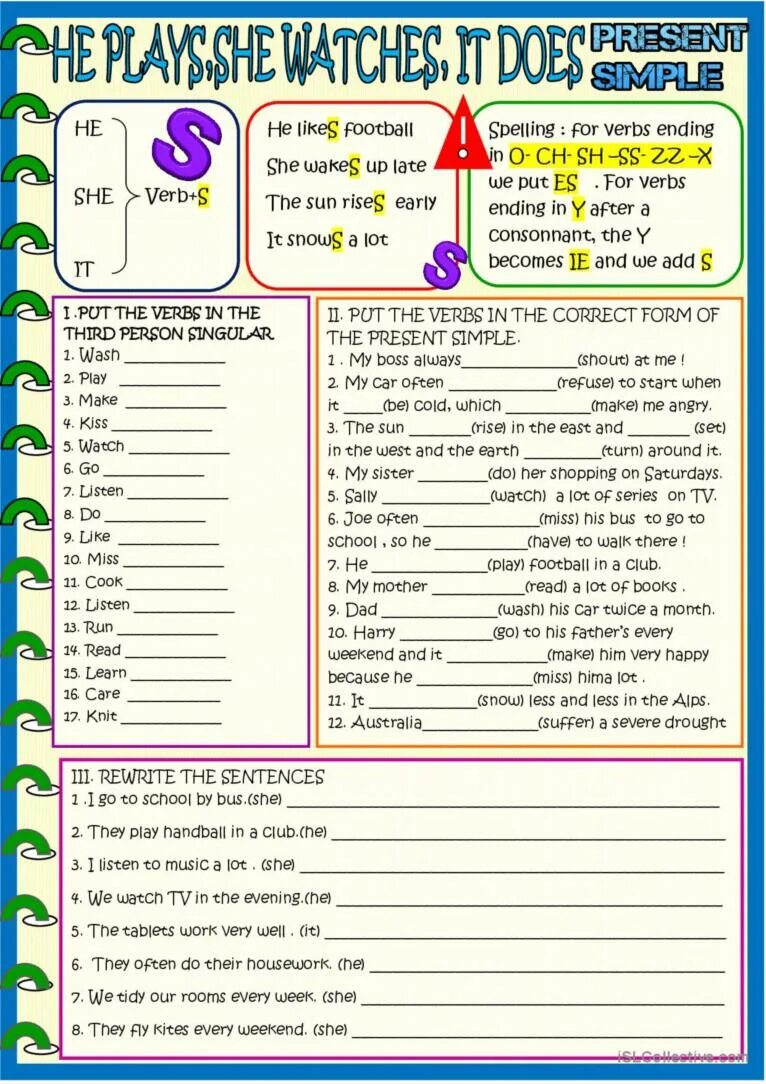 HE PLAYS,SHE WATCHES, IT DOES PRESENT SIMPLE
HE
SHE Verb+S
IT
S
He likeS football
She wakeS up late
The sun riseS early
It snowS a lot
S
!
Spelling : for verbs ending
in O- CH- SH –SS- ZZ –X
we put ES . For verbs
ending in Y after a
consonnant, the Y
becomes IE and we add S
I .PUT THE VERBS IN THE
THIRD PERSON SINGULAR
1. Wash ____________
2. Play ____________
3. Make ____________
4. Kiss ____________
5. Watch ____________
6. Go ____________
7. Listen ____________
8. Do ____________
9. Like ____________
10. Miss ____________
11. Cook ____________
12. Listen ____________
13. Run ____________
14. Read ____________
15. Learn ____________
16. Care ____________
17. Knit ____________
II. PUT THE VERBS IN THE CORRECT FORM OF
THE PRESENT SIMPLE.
1 . My boss always______________(shout) at me !
2. My car often _____________(refuse) to start when
it _____(be) cold, which __________(make) me angry.
3. The sun ________(rise) in the east and ________ (set)
in the west and the earth __________(turn) around it.
4. My sister _________(do) her shopping on Saturdays.
5. Sally _____________(watch) a lot of series on TV.
6. Joe often ______________(miss) his bus to go to
school , so he ___________(have) to walk there !
7. He ______________(play) football in a club.
8. My mother ___________(read) a lot of books .
9. Dad _____________(wash) his car twice a month.
10. Harry ___________(go) to his father's every
weekend and it ____________(make) him very happy
because he ______________(miss) hima lot .
11. It _____________(snow) less and less in the Alps.
12. Australia______________(suffer) a severe drought
III. REWRITE THE SENTENCES
1 .I go to school by bus.(she) ____________________
2. They play handball in a club.(he) ____________________
3. I listen to music a lot . (she) ____________________
4. We watch TV in the evening.(he) ____________________
5. The tablets work very well . (it) ____________________
6. They often do their housework. (he) ____________________
7. We tidy our rooms every week. (she) ____________________
8. They fly kites every weekend. (she) ____________________
iSLCollective.com